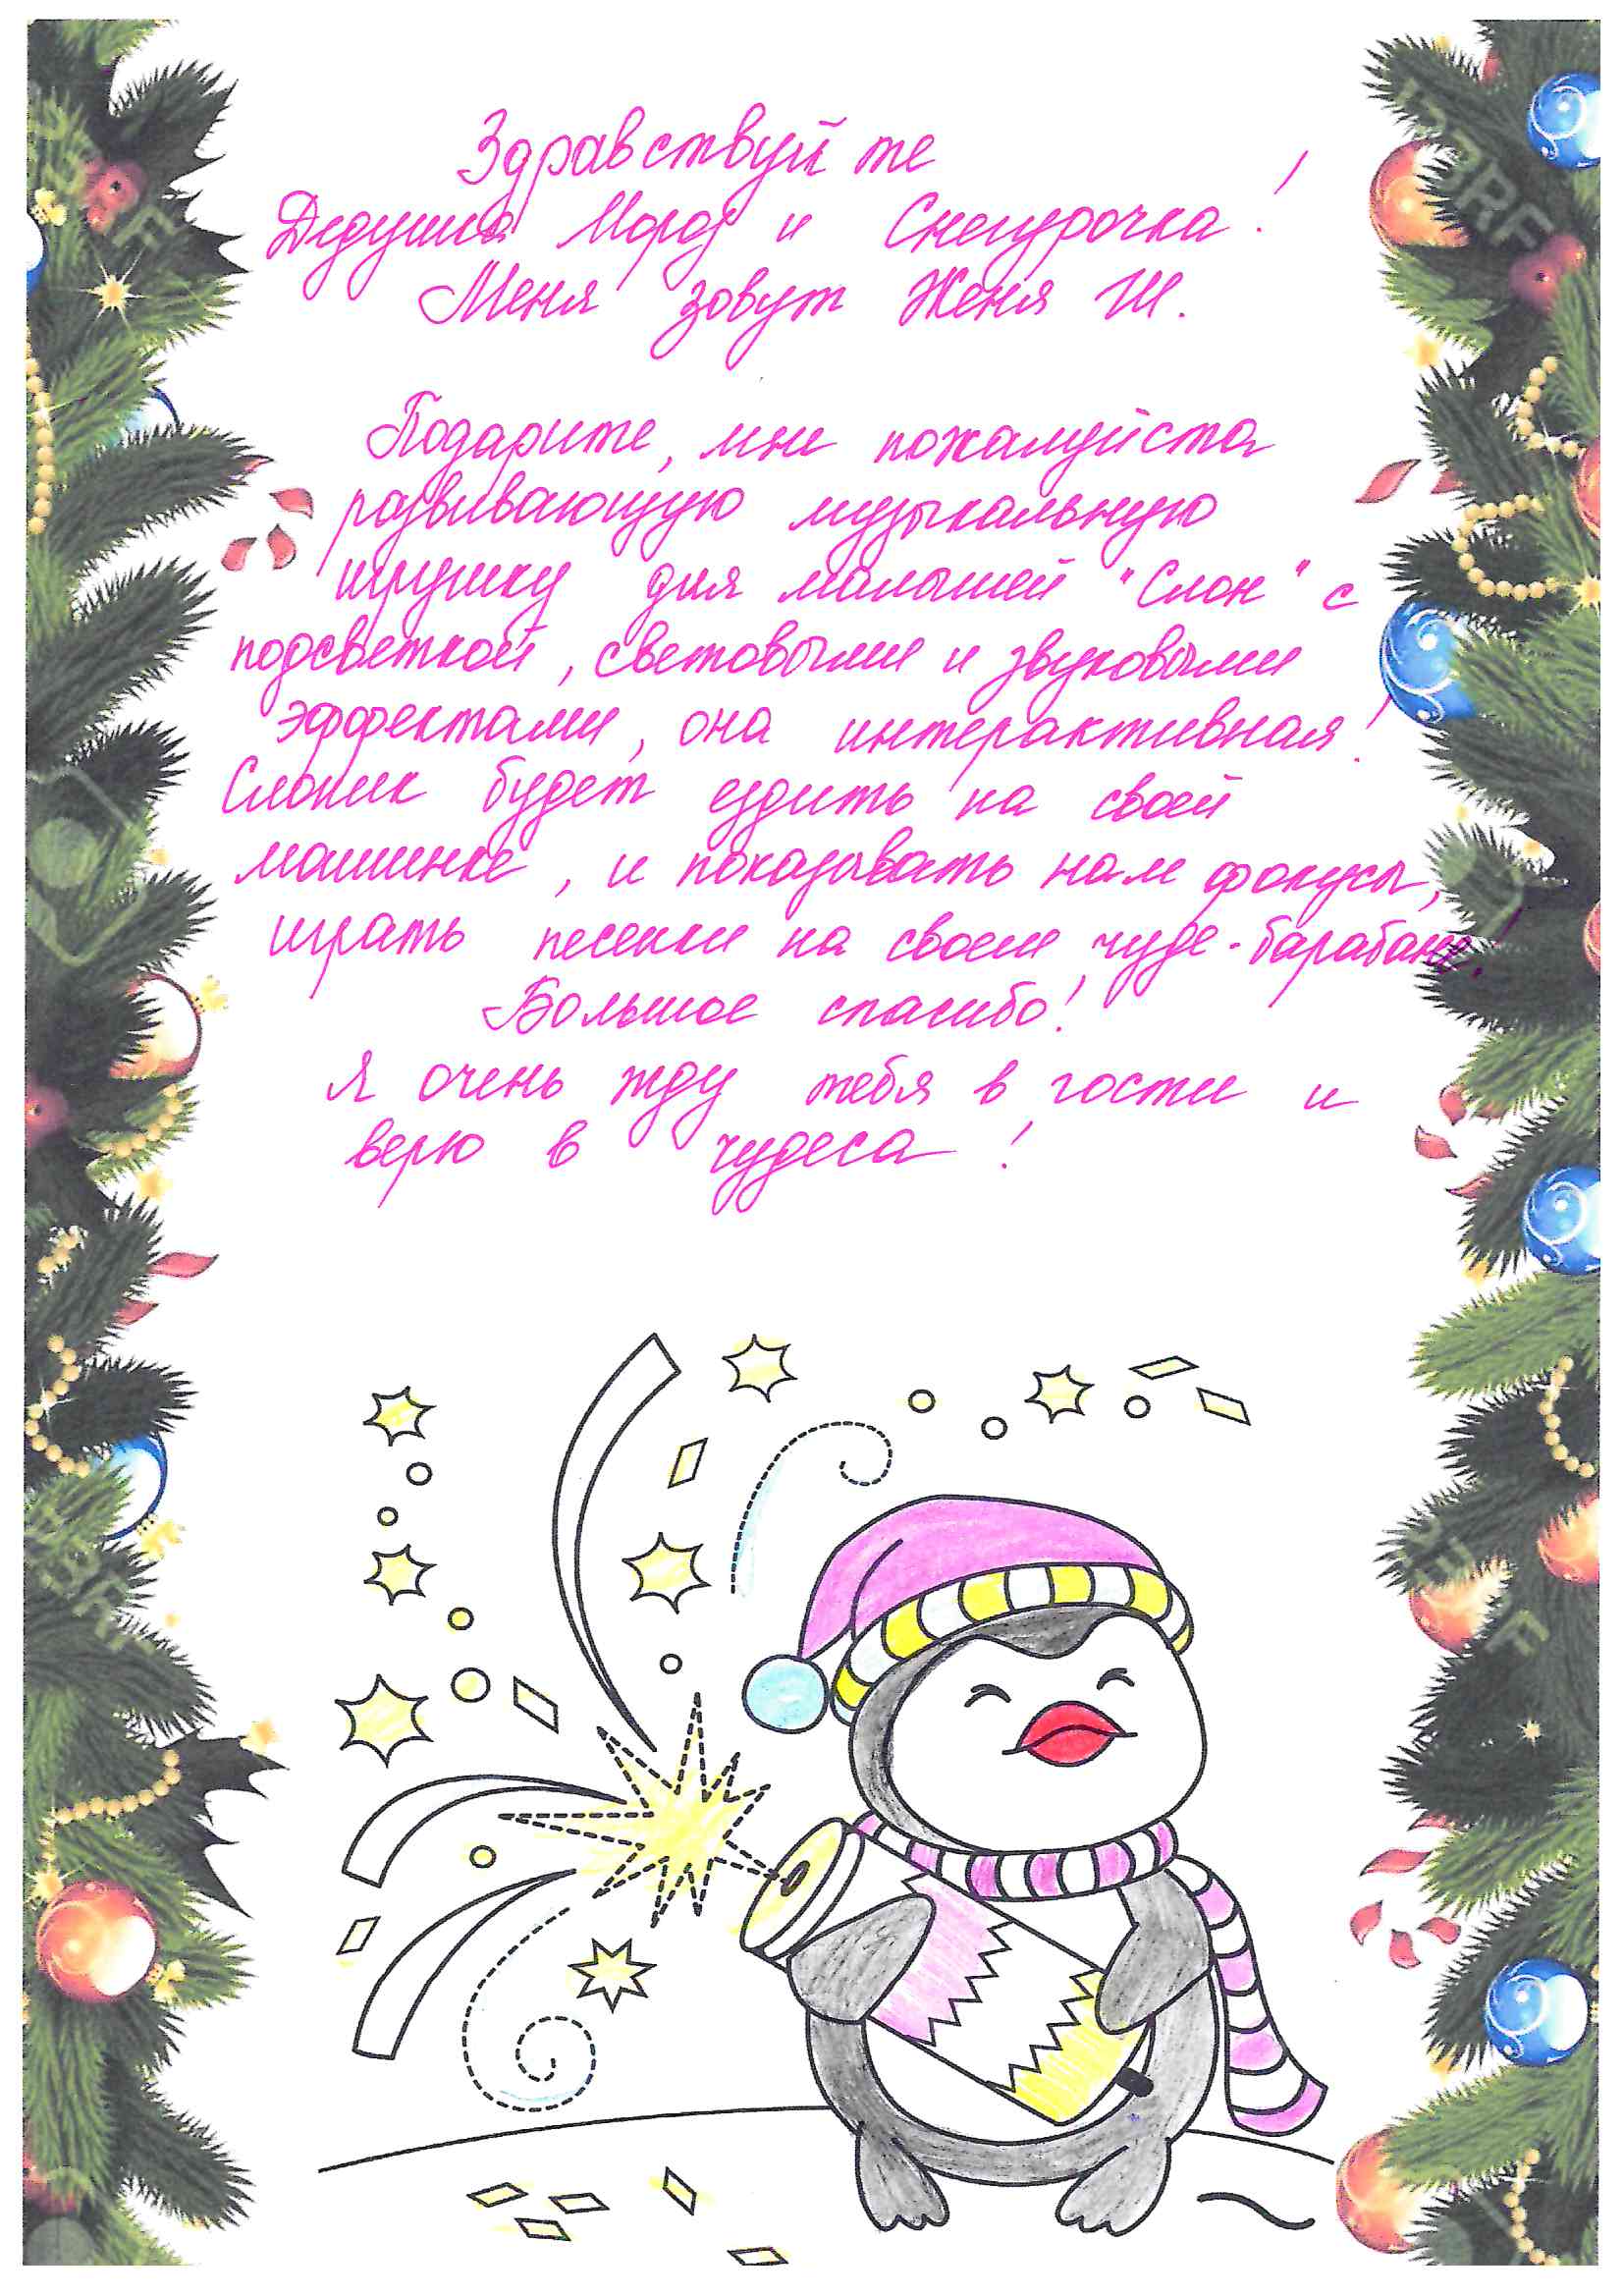 Здравствуйте
Дедушка Мороз и Снегурочка!
Меня зовут Женя Ш.
Подарите, мне пожалуйста
развивающую музыкальную
игрушку для малышей "Слон" с
подсветкой, световыми и звуковыми
эффектами, она интерактивная!
Слоник будет ездить на своей
машинке, и показывать нам фокусы,
играть песенки на своем чуде-барабане!
Большое спасибо!
Я очень жду тебя в гости и
верю в чудеса!